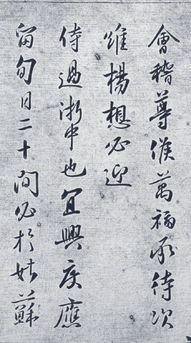 會稽尊候萬福承待次
維楊想必迎
侍過浙中也宜興度應
留旬日二十間必於姑蘇